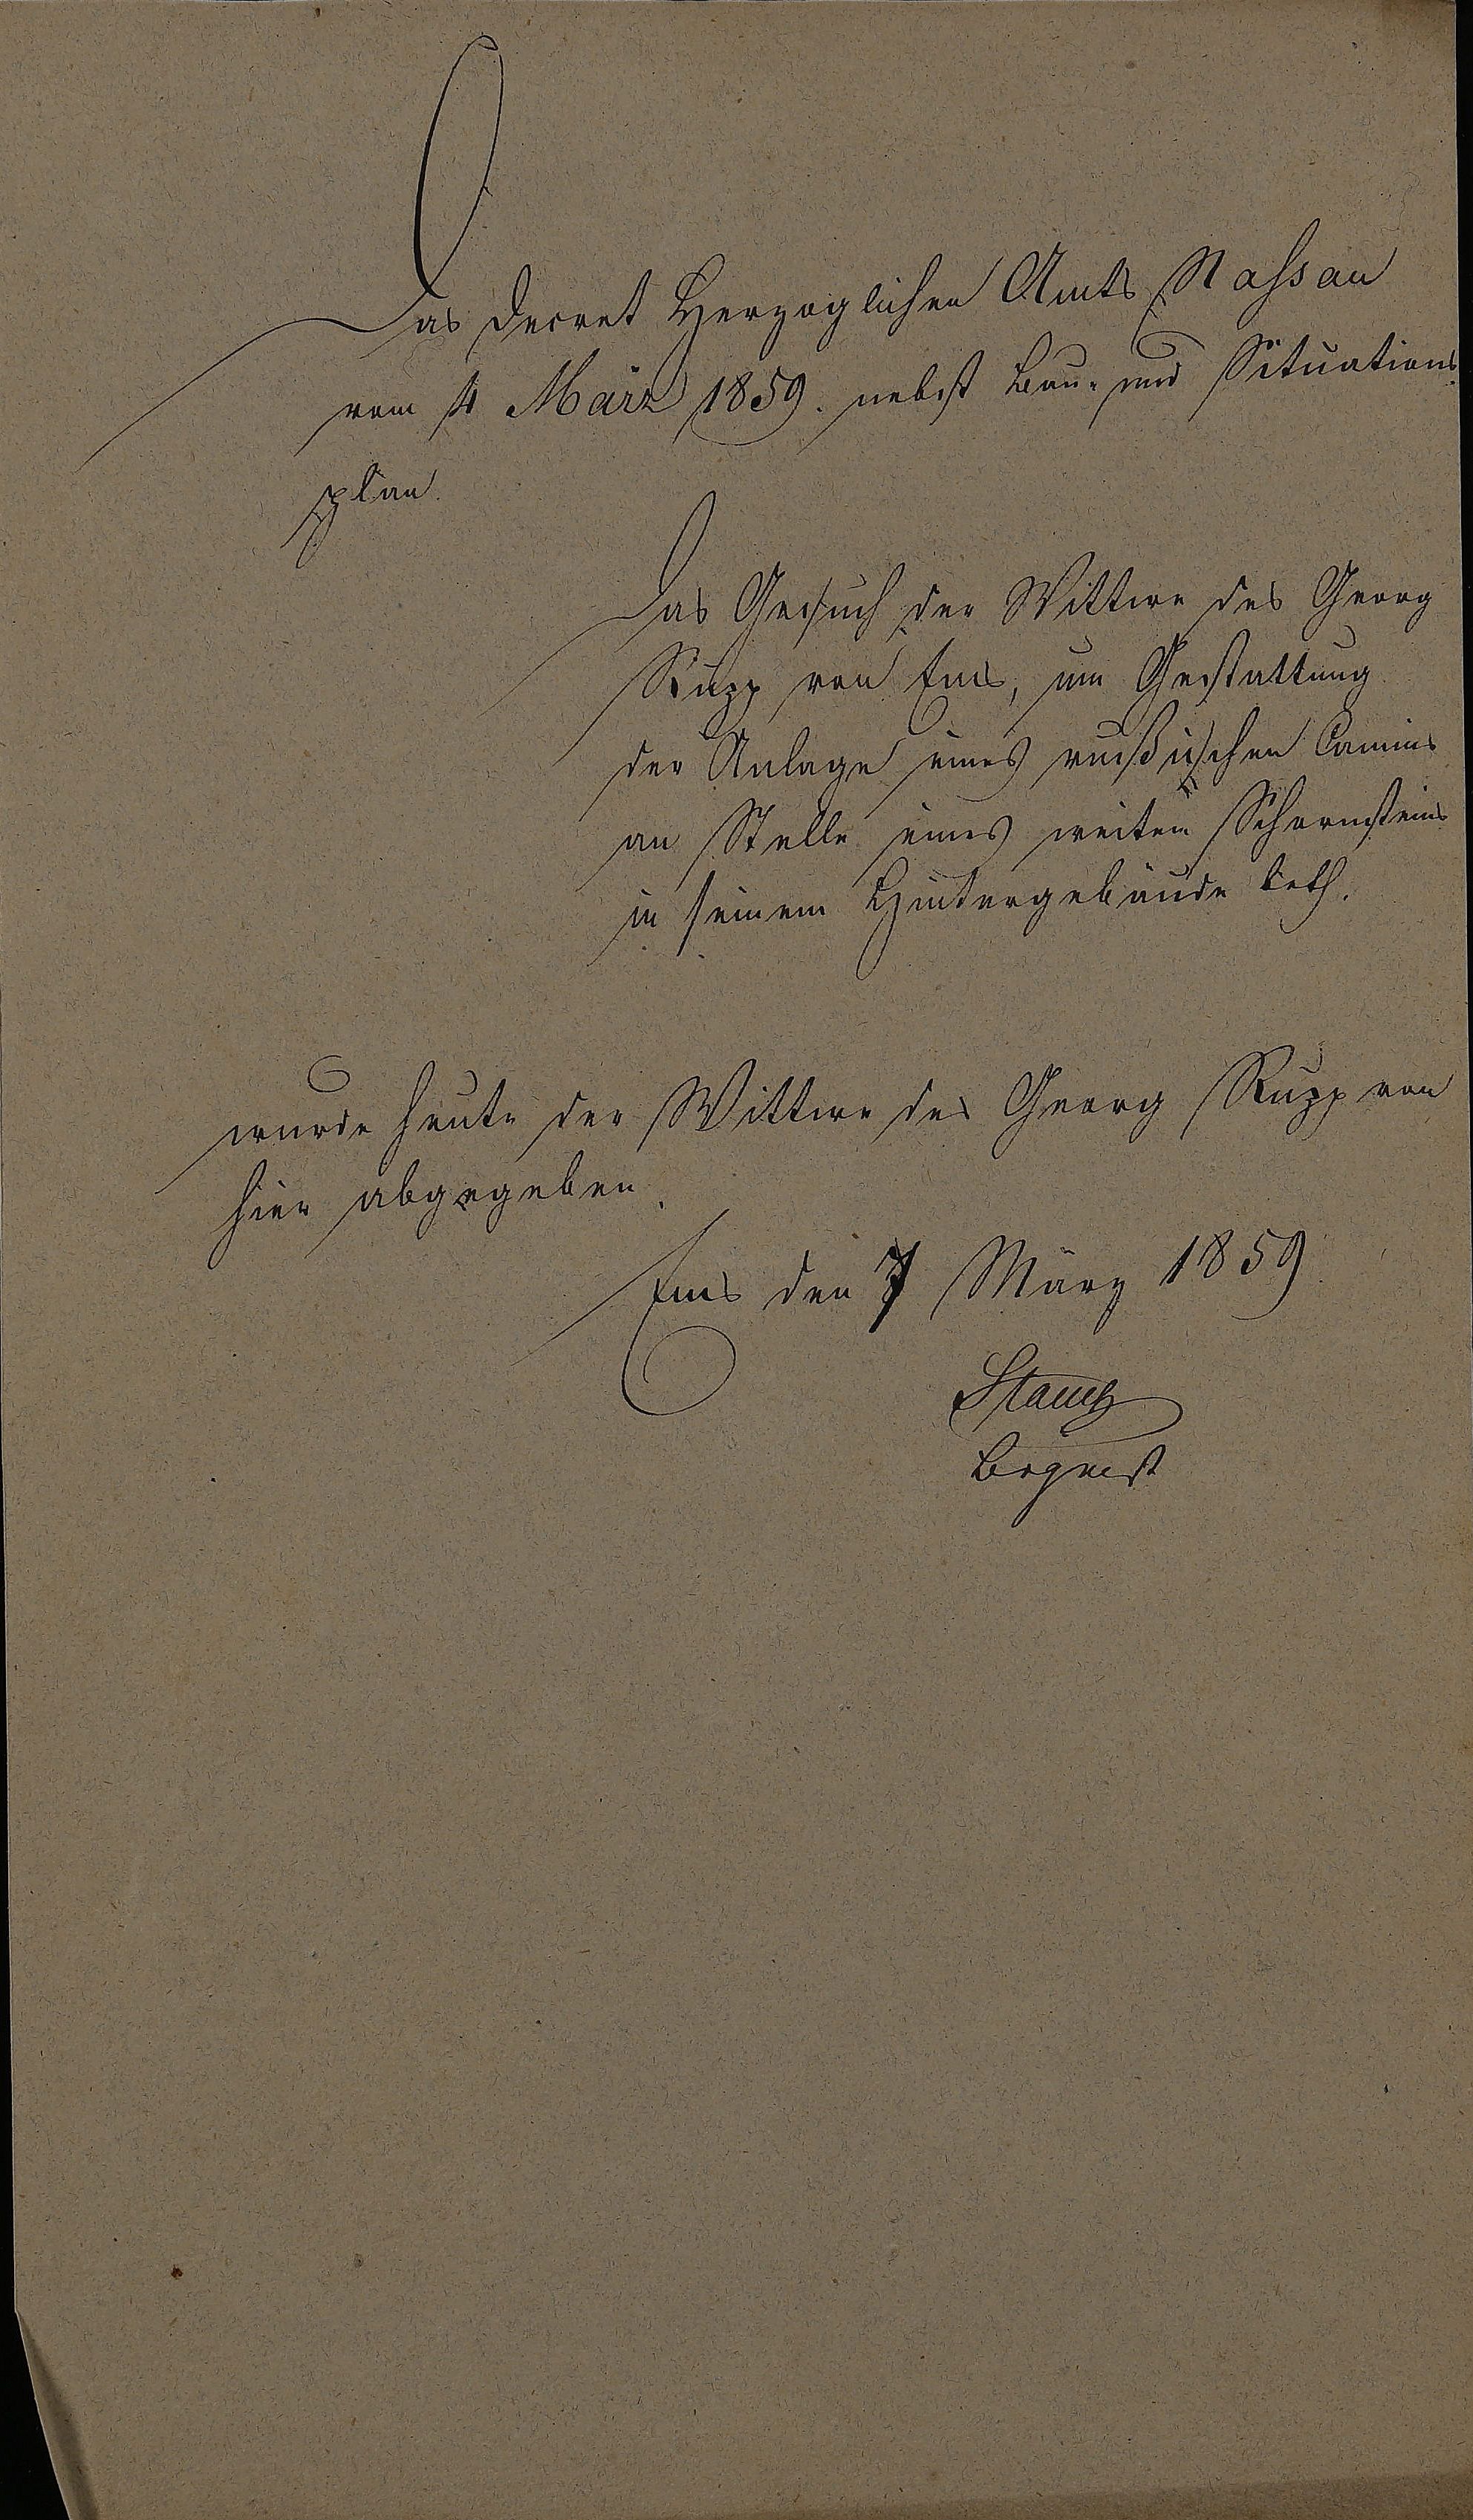 Das Decret Herzoglichen Amts Nassau
vom 4 März 1859. nebst Bau- und Situations-
plan.
Das Gesuch der Wittwe des Georg
Rupp von Ems, um Gestattung
der Anlage eines rußischen Camins
an Stelle eines weiten Schornsteins
in seinem Hintergebäude betf.
wurde heute der Wittwe des Georg Rupp von
hier abgegeben.
Ems den 7 März 1859
Brgmst